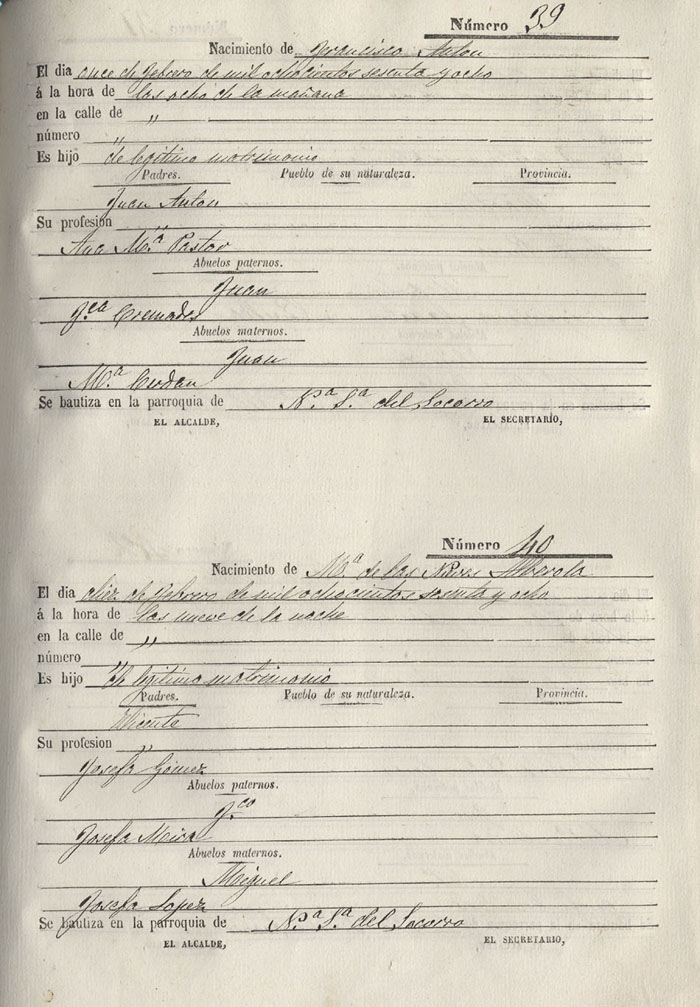 Número 39
Nacimiento de Francisco Anton
El dia once de febrero de mil ochocientos sesenta y ocho
á la hora de las ocho de la mañana
en la calle de "
número "
Es hijo de legitimo matrimonio
Padres. Pueblo de su naturaleza. Provincia.
Juan Anton
Su profesion "
Ana Mª Pastor
Abuelos paternos.
Juan
Fca Cremades
Abuelos maternos.
Juan
Mª Cerdan
Se bautiza en la parroquia de Nª Sª del Socorro
EL ALCALDE, EL SECRETARIO,
Número 40
Nacimiento de Mª de las Nieves Alberola
El dia diez de febrero de mil ochocientos sesenta y ocho
á la hora de las nueve de la noche
en la calle de "
número "
Es hijo de legitimo matrimonio
Padres. Pueblo de su naturaleza. Provincia.
Vicente
Su profesion "
Josefa Gomez
Abuelos paternos.
Fco
Josefa Mira
Abuelos maternos.
Miguel
Josefa Lopez
Se bautiza en la parroquia de Nª Sª del Socorro
EL ALCALDE, EL SECRETARIO,